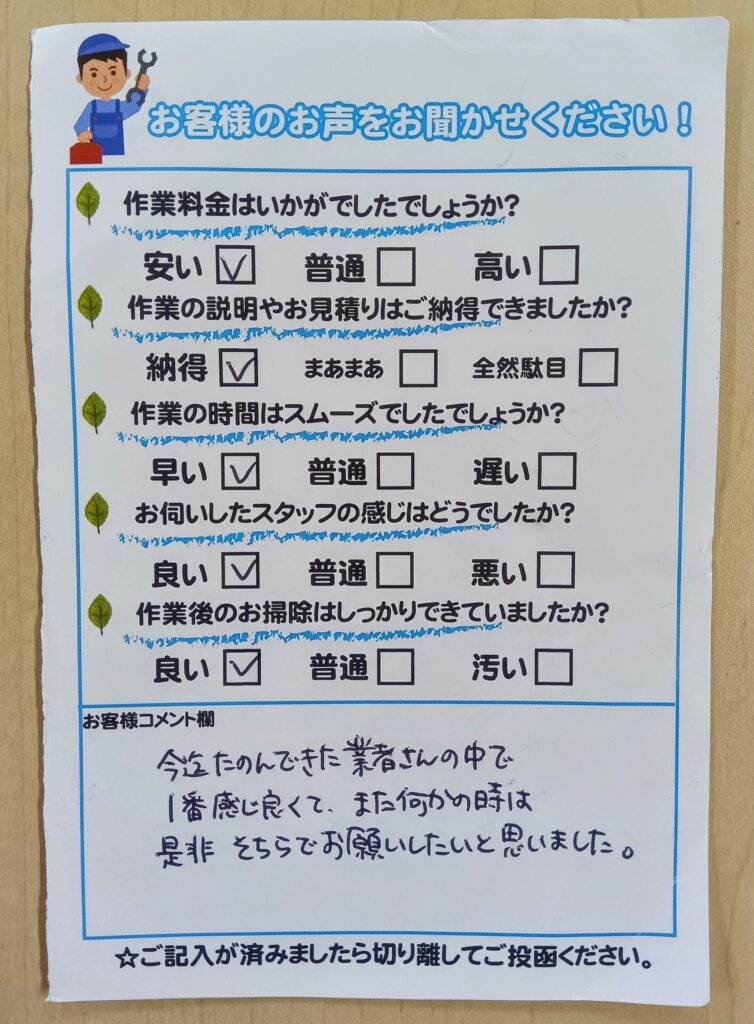 お客様のお声をお聞かせください！
作業料金はいかがでしたでしょうか?
安い ☑ 普通 ☐ 高い ☐
作業の説明やお見積りはご納得できましたか?
納得 ☑ まあまあ ☐ 全然駄目 ☐
作業の時間はスムーズでしたでしょうか?
早い ☑ 普通 ☐ 遅い ☐
お伺いしたスタッフの感じはどうでしたか?
良い ☑ 普通 ☐ 悪い ☐
作業後のお掃除はしっかりできていましたか?
良い ☑ 普通 ☐ 汚い ☐
お客様コメント欄
今迄たのんできた業者さんの中で
1番感じ良くて、また何かの時は
是非 そちらでお願いしたいと思いました。
☆ご記入が済みましたら切り離してご投函ください。